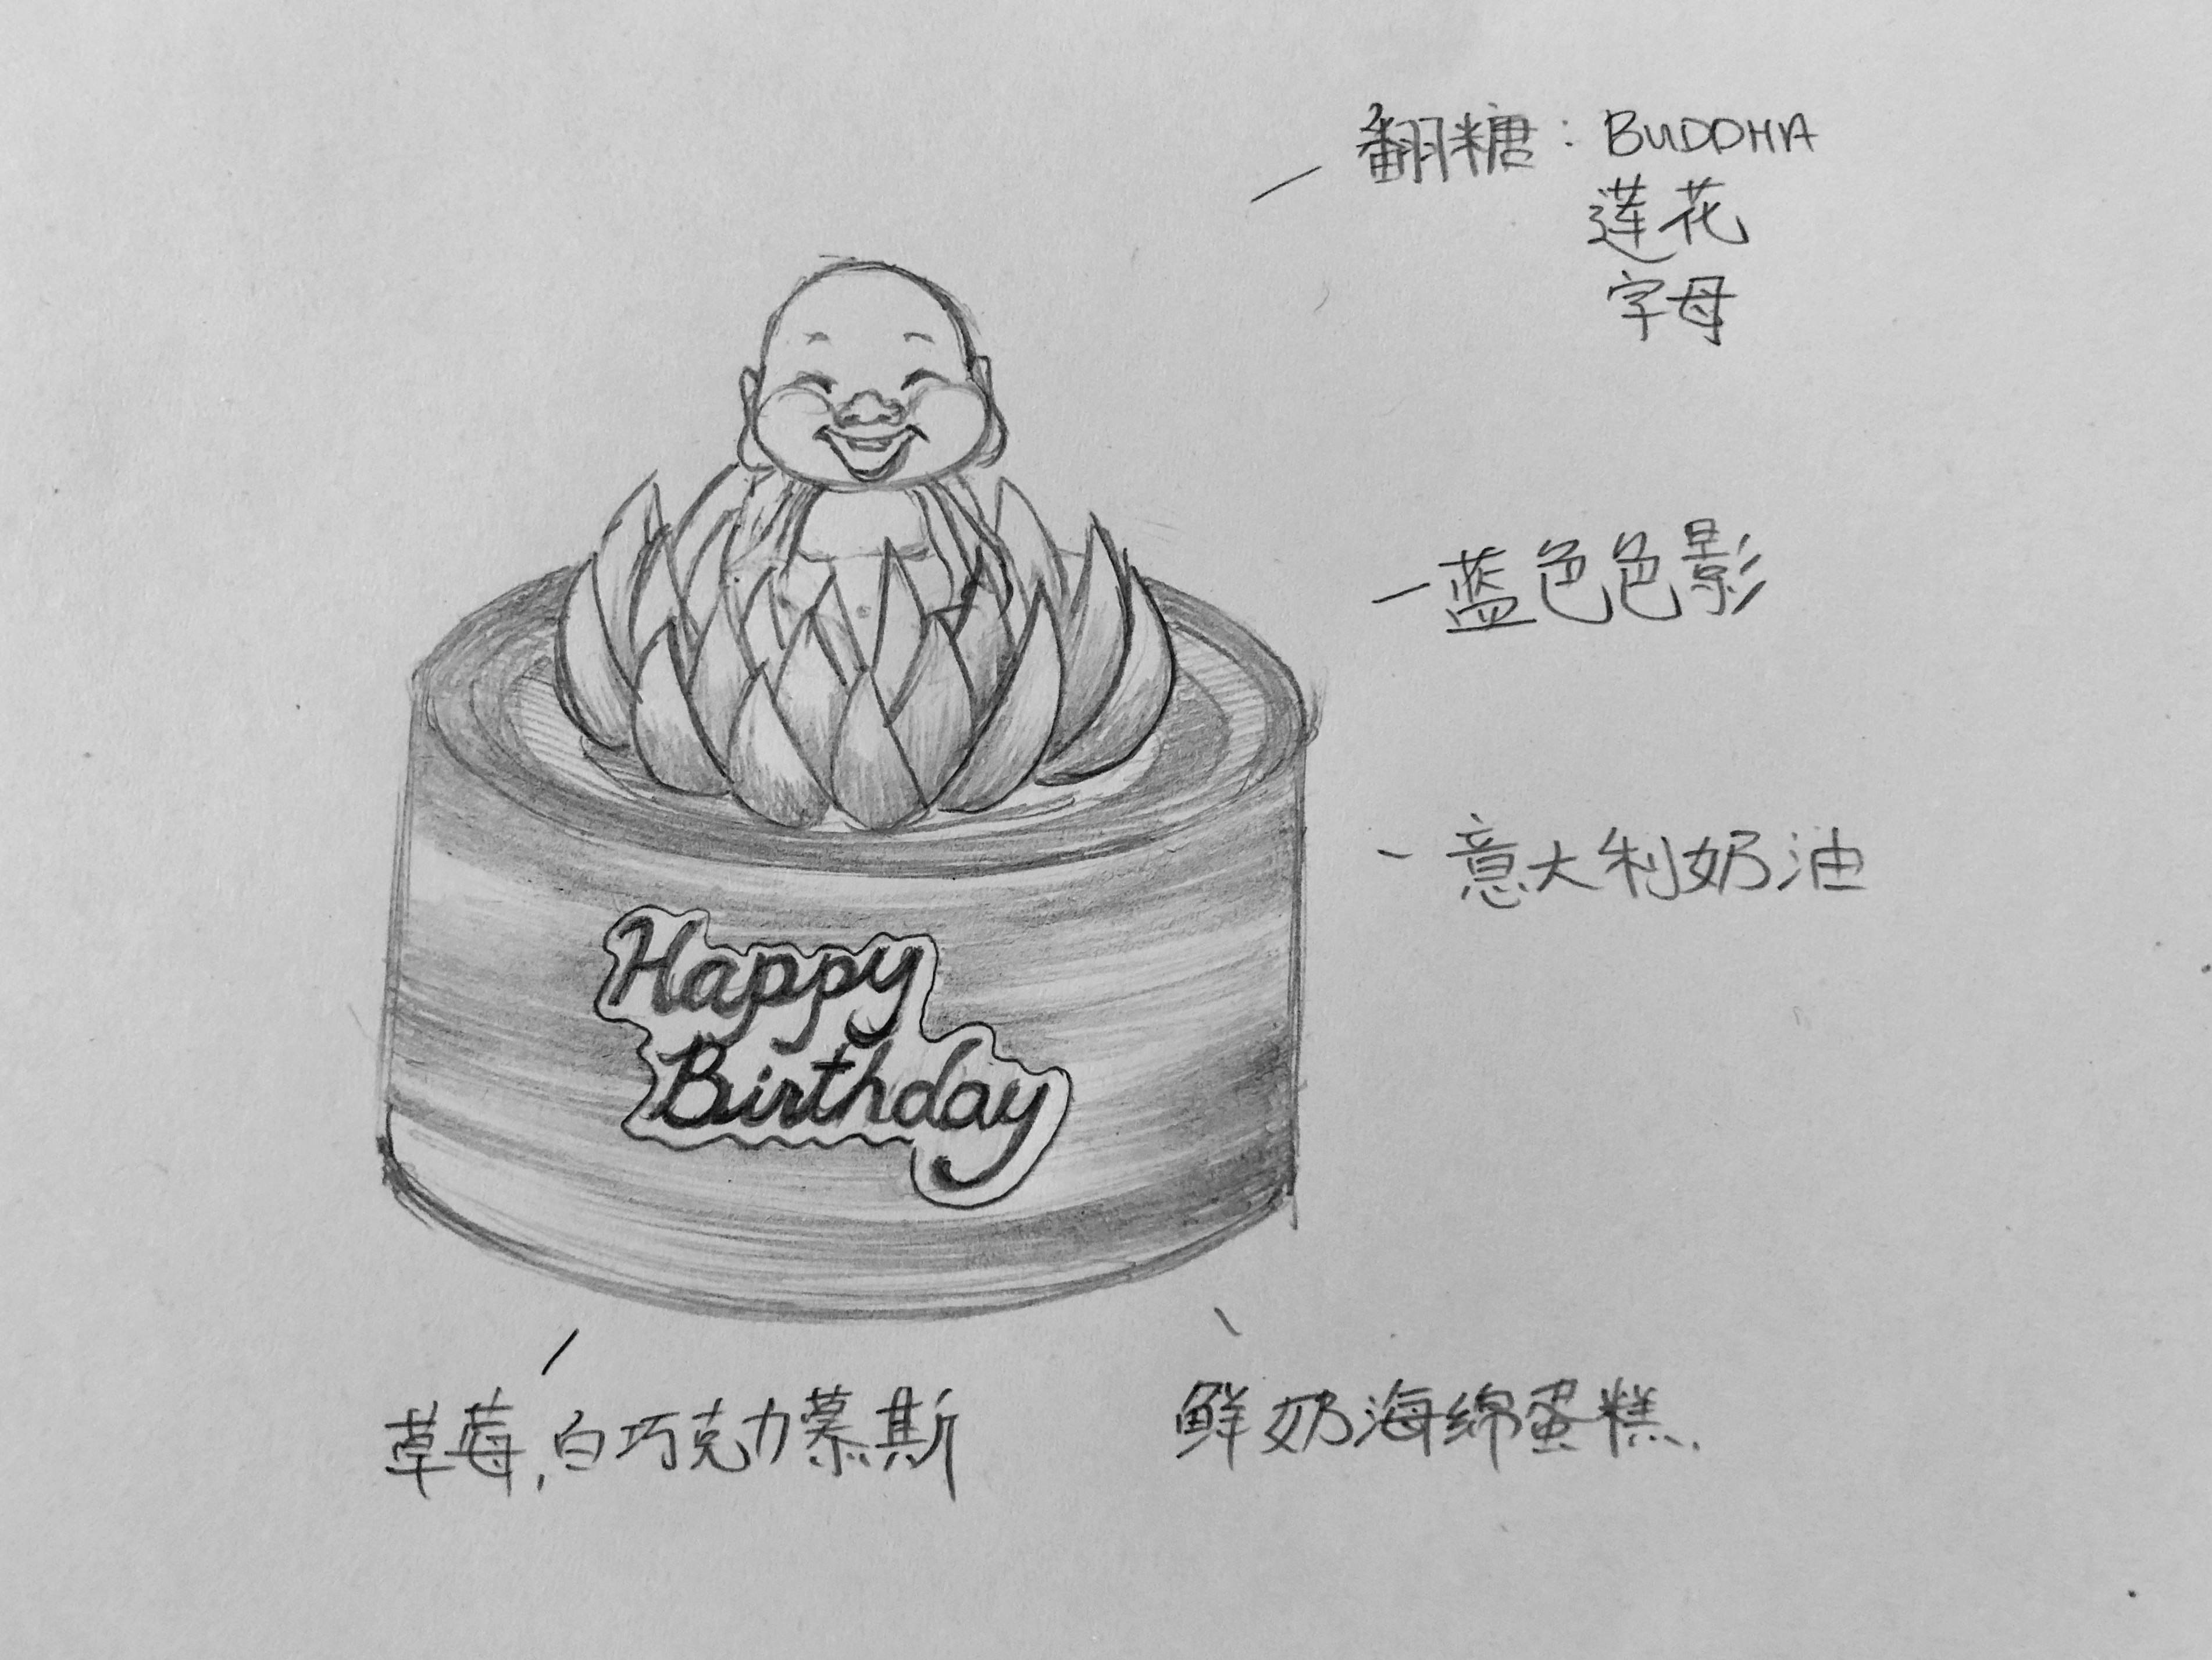 翻糖: BUDDHA
莲花
字母
蓝色色影
意大利奶油
Happy
Birthday
草莓,白巧克力慕斯
鲜奶海绵蛋糕.